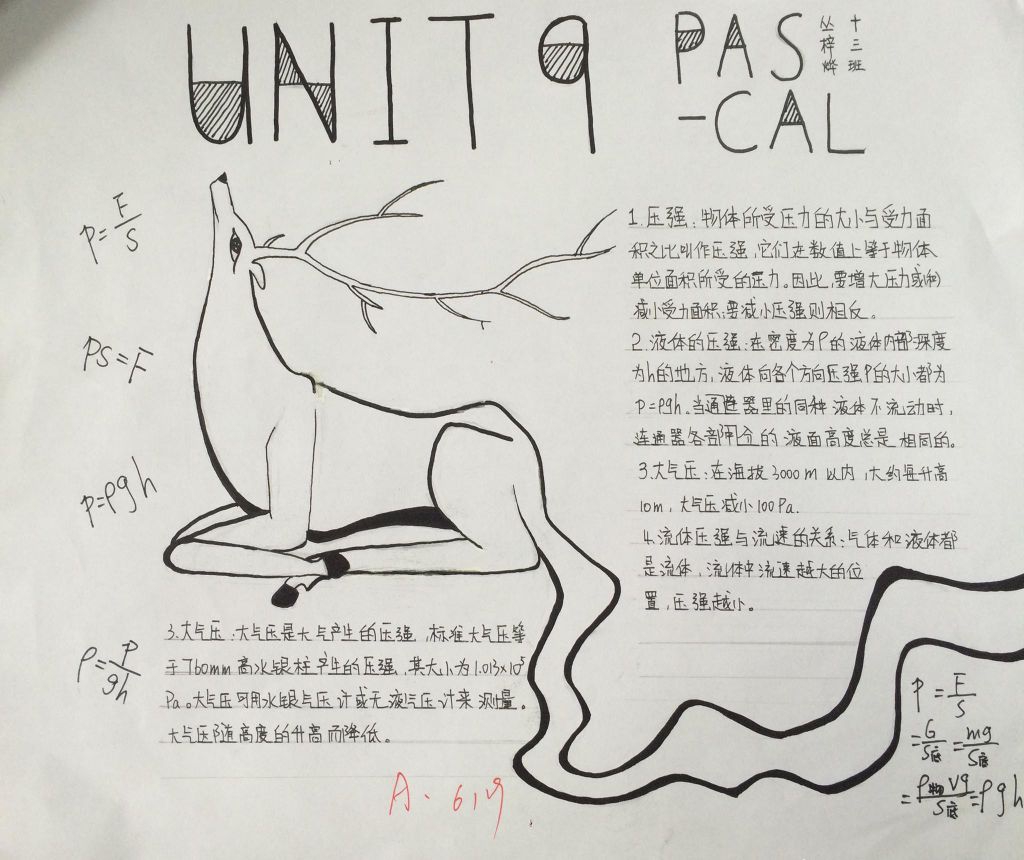 UNIT 9 PAS
-CAL
十三班
丛梓烨
p=F/S
PS=F
p=ρgh
ρ=P/gh
1.压强：物体所受压力的大小与受力面
积之比叫作压强，它们在数值上等于物体
单位面积所受的压力。因此，要增大压力或(和)
减小受力面积；要减小压强则相反。
2.液体的压强：在密度为ρ的液体内部深度
为h的地方，液体向各个方向压强P的大小都为
P=ρgh。当通连器里的同种液体不流动时，
连通器各部开分的液面高度总是相同的。
3.大气压：在海拔3000m以内，大约每升高
10m，大气压减小100Pa.
4.流体压强与流速的关系：气体和液体都
是流体，流体中流速越大的位
置，压强越小。
3.大气压：大气压是大气产生的压强，标准大气压等
于760mm高水银柱产生的压强，其大小为1.013×10⁵
Pa。大气压可用水银气压计或无液气压计来测量。
大气压随高度的升高而降低。
P=F/S
=G/S底=mg/S底
=ρ物Vg/S底=ρgh
A. 6.19